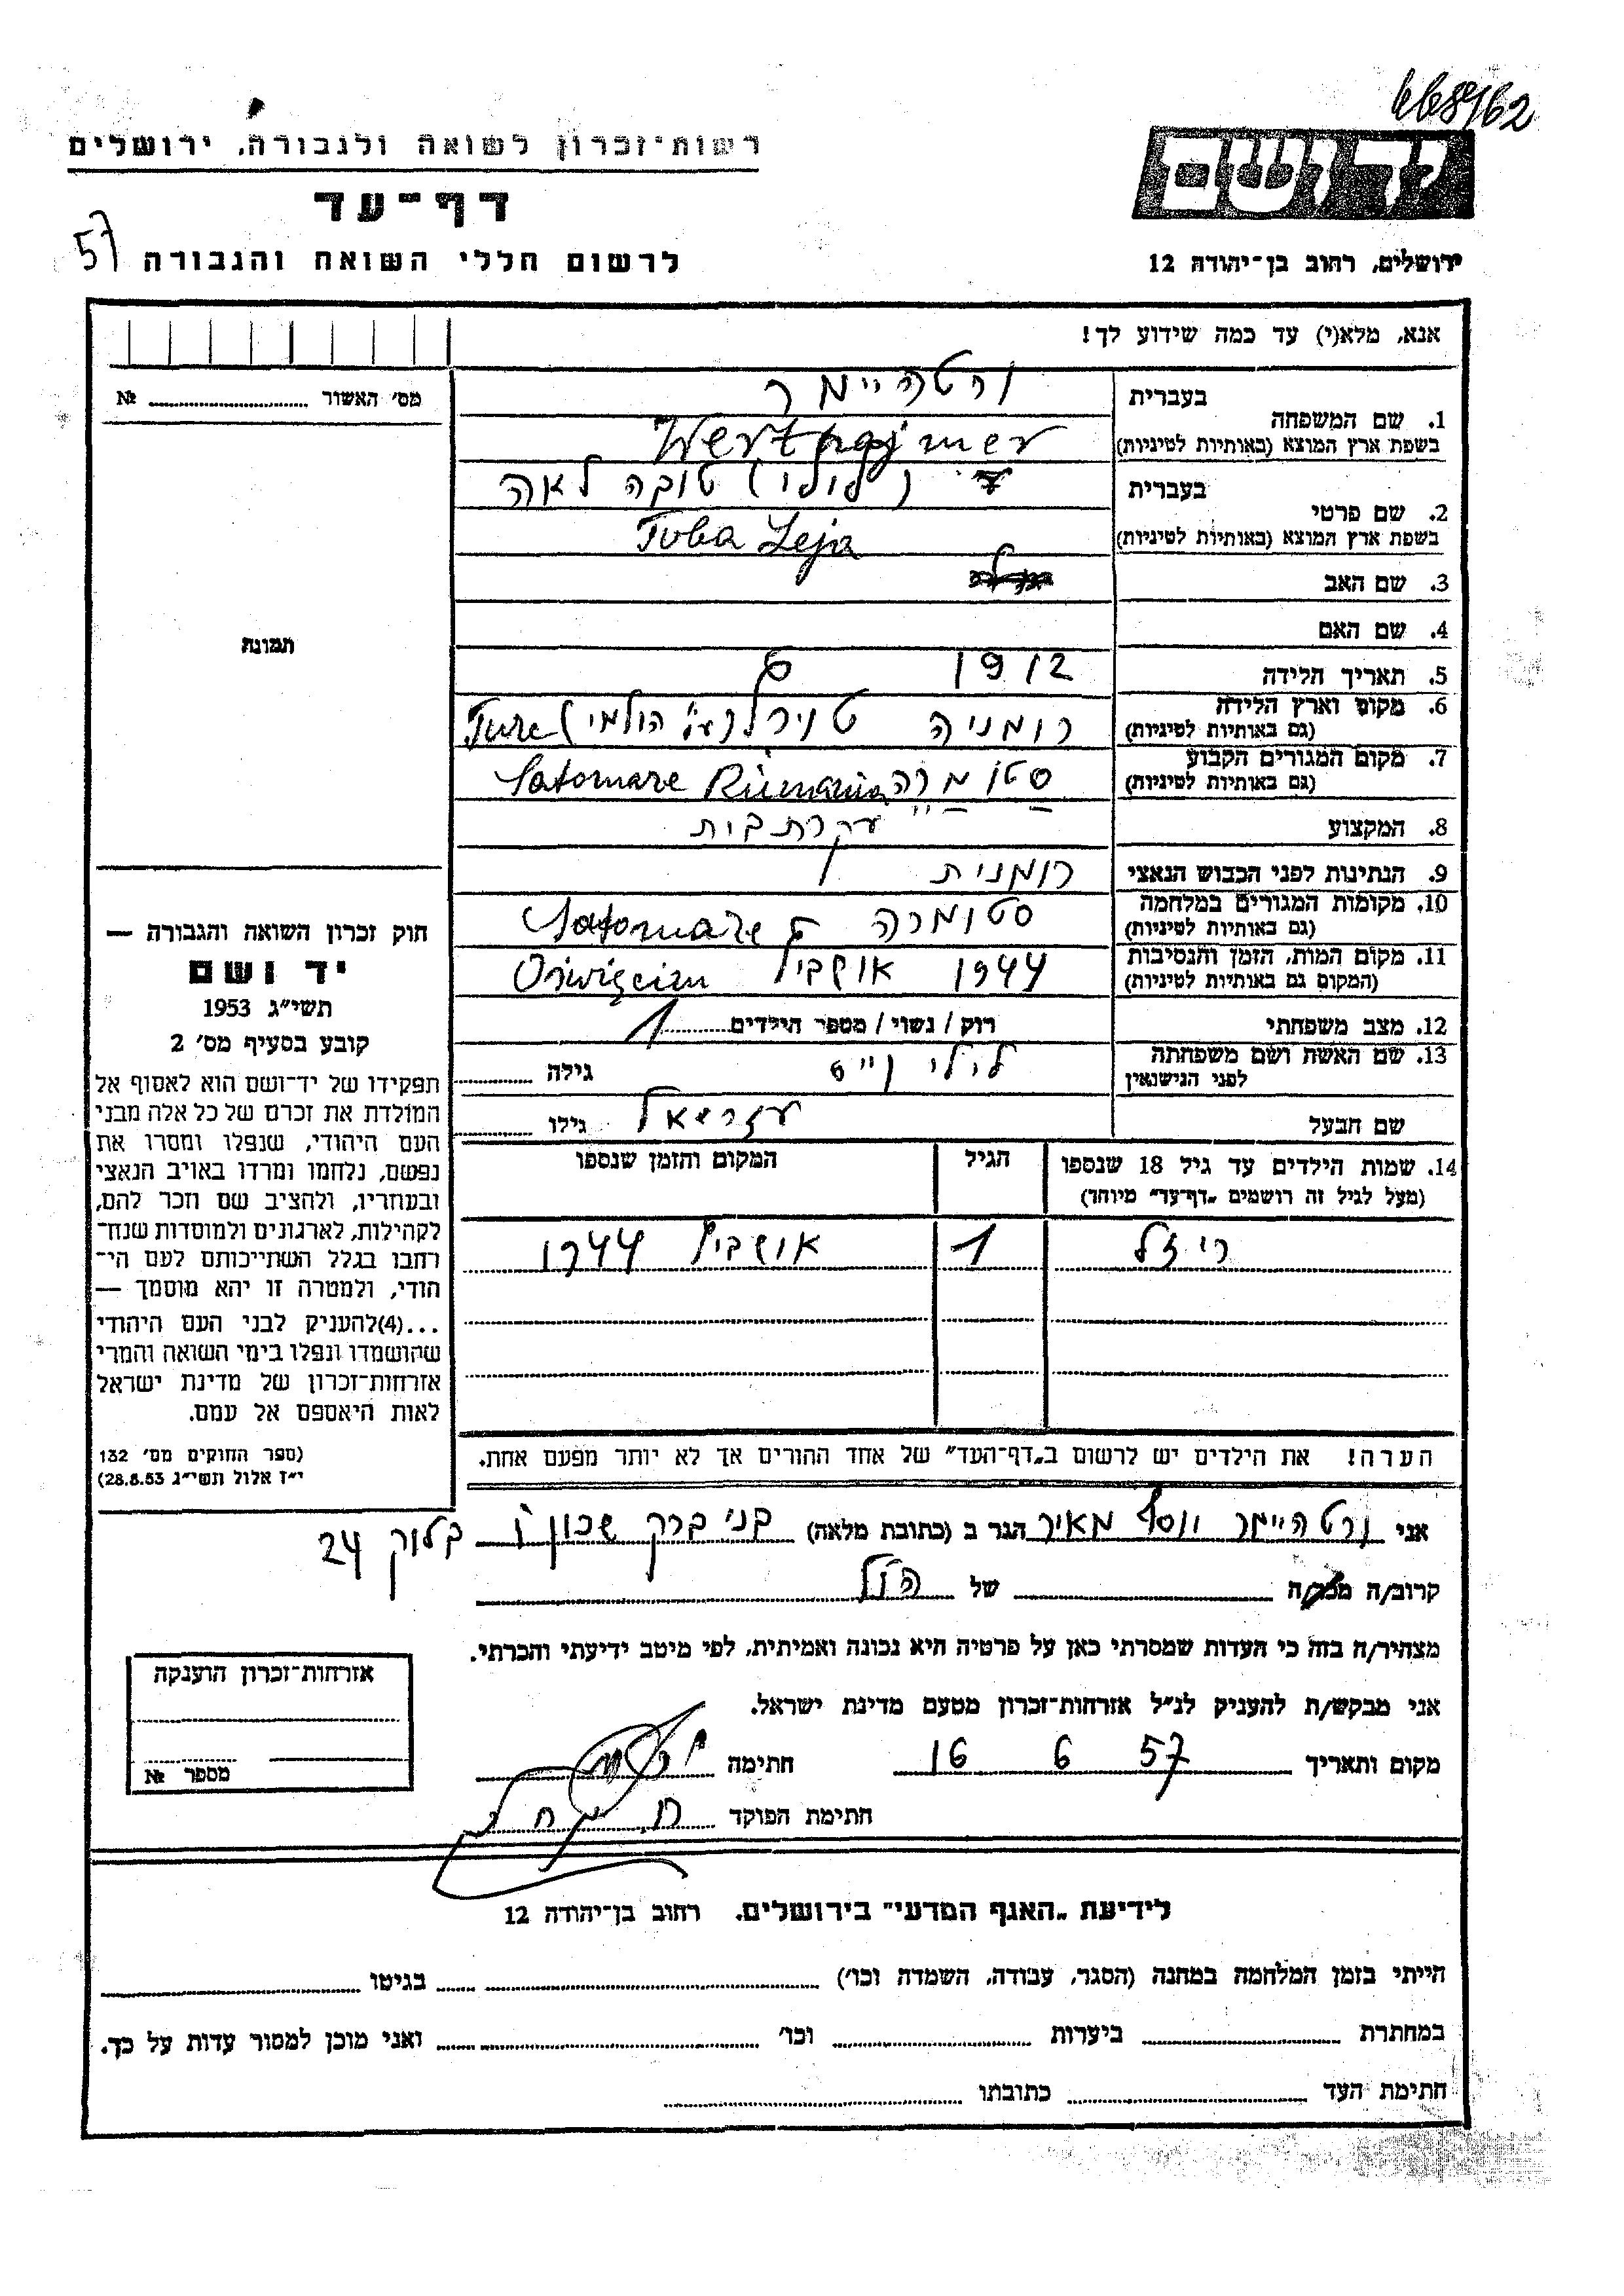 668/62
רשות-זכרון לשואה ולגבורה, ירושלים
דף-עד
לרשום חללי השואה והגבורה
57
יד ושם
ירושלים, רחוב בן-יהודה 12
אנא, מלא(י) עד כמה שידוע לך!
מס' האשור № 
1. שם המשפחה בעברית ורטהיימר
בשפת ארץ המוצא (באותיות לטיניות) Werthajmer
2. שם פרטי בעברית (לילי) טובה לאה
בשפת ארץ המוצא (באותיות לטיניות) Tuba Leja
3. שם האב
4. שם האם
תמונה
5. תאריך הלידה 1912
6. מקום וארץ הלידה (גם באותיות לטיניות) רומניה
7. מקום המגורים הקבוע (גם באותיות לטיניות) סטומרה Satomare Rumania
8. המקצוע עקרת בית
9. הנתינות לפני הכבוש הנאצי רומנית
10. מקומות המגורים במלחמה (גם באותיות לטיניות) סטומרה Satomare
11. מקום המות, הזמן והנסיבות (המקום גם באותיות לטיניות) 1944 אושביץ Oświęcim
12. מצב משפחתי רווק / נשוי / מספר הילדים 1
13. שם האשה ושם משפחתה לפני הנישואין לילי וייס גילה
שם הבעל עזריאל גילו
14. שמות הילדים עד גיל 18 שנספו (מעל לגיל זה רושמים "דף-עד" מיוחד) הגיל המקום והזמן שנספו
ריזל 1 אושביץ 1944
הערה! את הילדים יש לרשום ב"דף-העד" של אחד ההורים אך לא יותר מפעם אחת.
חוק זכרון השואה והגבורה —
יד ושם
תשי"ג 1953
קובע בסעיף מס' 2
תפקידו של יד-ושם הוא לאסוף אל
המולדת את זכרם של כל אלה מבני
העם היהודי, שנפלו ומסרו את
נפשם, נלחמו ומרדו באויב הנאצי
ובעוזריו, ולהציב שם וזכר להם,
לקהילות, לארגונים ולמוסדות שנח-
רחבו בגלל השתייכותם לעם הי-
הודי, ולמטרה זו יהא מוסמך —
...(4)להעניק לבני העם היהודי
שהושמדו ונפלו בימי השואה והמרי
אזרחות-זכרון של מדינת ישראל
לאות היאספם אל עמם.
(ספר החוקים מס' 132
י"ז אלול תשי"ג 28.8.53)
אני ורטהיימר יוסף מאיר הגר ב (כתובת מלאה) בני ברק שכון ו בלוק 24
קרוב/ה מכר/ה של הנ"ל
מצהיר/ה בזה כי העדות שמסרתי כאן על פרטיה היא נכונה ואמיתית, לפי מיטב ידיעתי והכרתי.
אני מבקש/ת להעניק לנ"ל אזרחות-זכרון מטעם מדינת ישראל.
מקום ותאריך 16 6 57 חתימה
חתימת הפוקד
אזרחות-זכרון הוענקה
מספר №
לידיעת "האגף המדעי" בירושלים. רחוב בן-יהודה 12
הייתי בזמן המלחמה במחנה (הסגר, עבודה, השמדה וכו') בגיטו
במחתרת ביערות וכו' ואני מוכן למסור עדות על כך.
חתימת העד כתובתו